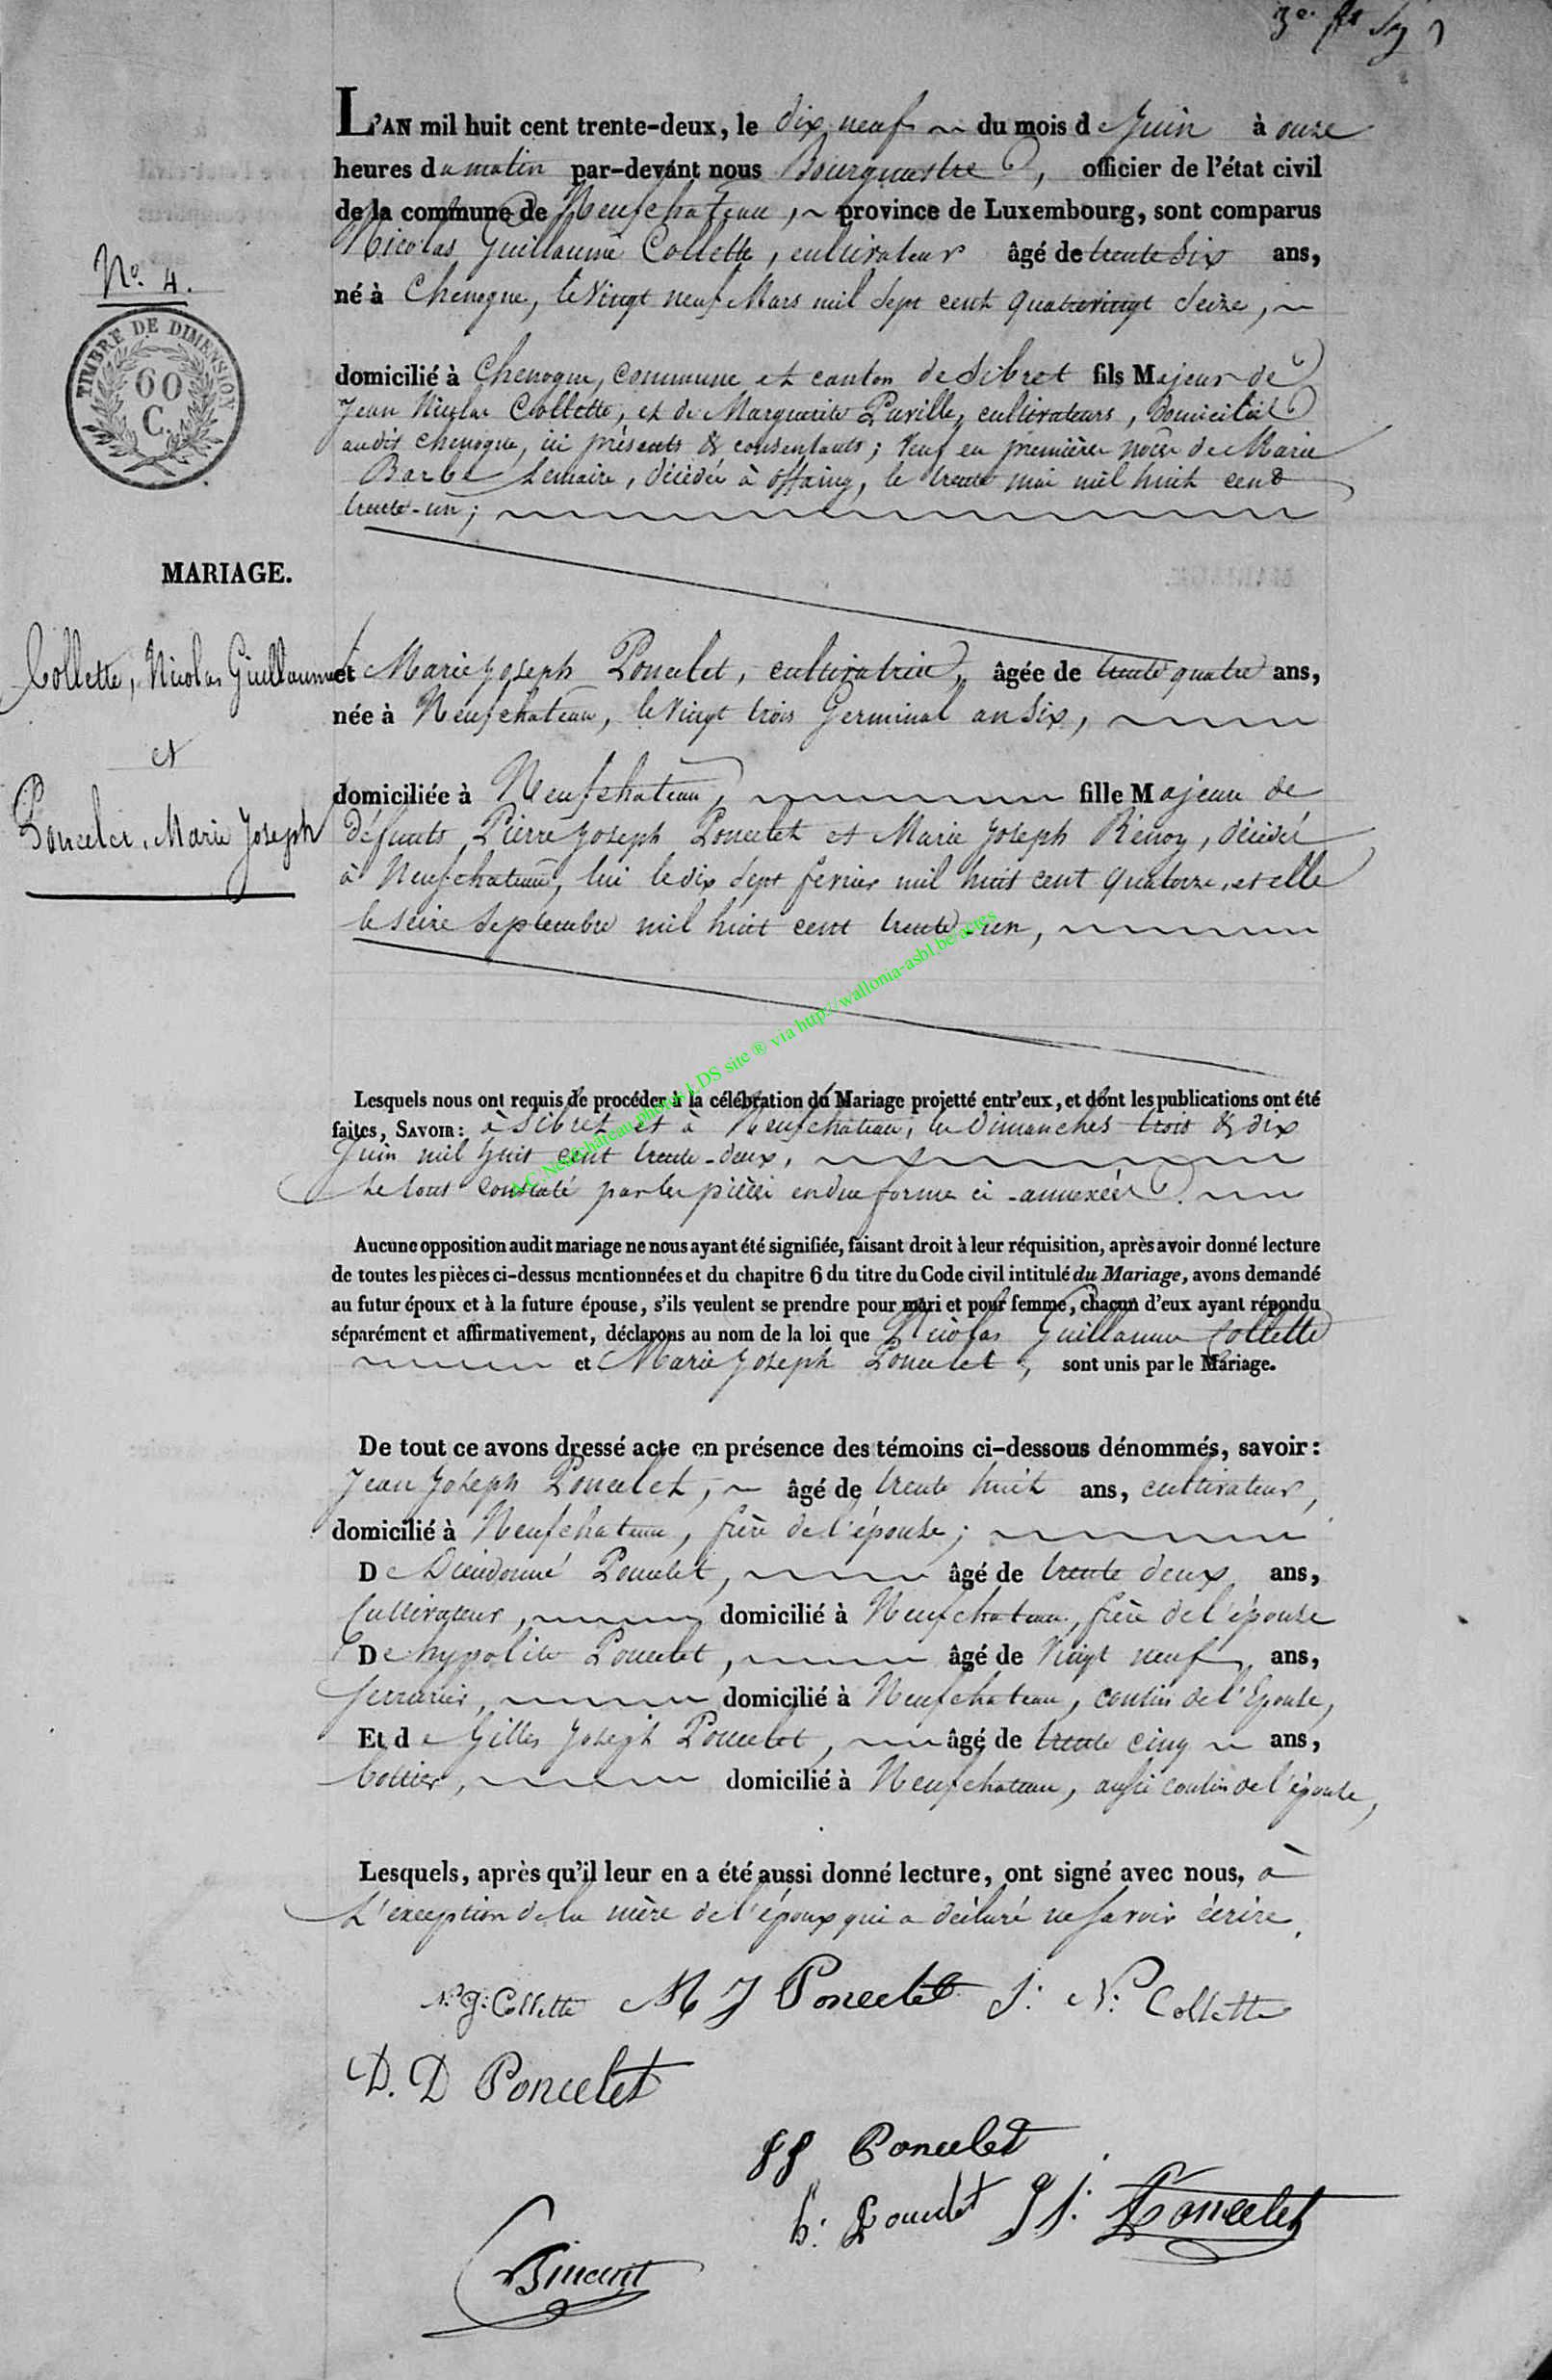 3e
L'AN mil huit cent trente-deux, le dix neuf du mois de Juin à onze
heures du matin par-devant nous Bourgmestre, officier de l'état civil
de la commune de Neufchateau, province de Luxembourg, sont comparus
Nicolas Guillaume Collette, cultivateur âgé de trente six ans,
né à Chenogne, le vingt neuf Mars mil sept cent quatrevingt seize,
domicilié à Chenogne, commune et canton de Sibret fils Majeur de
Jean Nicolas Collette, et de Marguerite Puville, cultivateurs, domiciliés
audit chenogne, ici présents & consentants; veuf en première noce de Marie
Barbe Lemaire, décédée à Offaing, le trente mai mil huit cent
trente-un;
No. 4.
TIMBRE DE DIMENSION
60
C.
MARIAGE.
Collette, Nicolas Guillaume
et
Poncelet, Marie Joseph
et Marie Joseph Poncelet, cultivatrice, âgée de trente quatre ans,
née à Neufchateau, le vingt trois Germinal an six,
domiciliée à Neufchateau, fille Majeure de
défunts Pierre Joseph Poncelet et Marie Joseph Renoy, décédés
à Neufchateau, lui le dix sept fevrier mil huit cent quatorze, et elle
le seize Septembre mil huit cent trente-un,
Lesquels nous ont requis de procéder à la célébration du Mariage projetté entr'eux, et dont les publications ont été
faites, SAVOIR: à Sibret et à Neufchateau, les Dimanches trois & dix
Juin mil huit cent trente-deux,
Le tout constaté par les pièces en due forme ci-annexées.
Aucune opposition audit mariage ne nous ayant été signifiée, faisant droit à leur réquisition, après avoir donné lecture
de toutes les pièces ci-dessus mentionnées et du chapitre 6 du titre du Code civil intitulé du Mariage, avons demandé
au futur époux et à la future épouse, s'ils veulent se prendre pour mari et pour femme, chacun d'eux ayant répondu
séparément et affirmativement, déclarons au nom de la loi que Nicolas Guillaume Collette
et Marie Joseph Poncelet, sont unis par le Mariage.
De tout ce avons dressé acte en présence des témoins ci-dessous dénommés, savoir:
Jean Joseph Poncelet, âgé de trente huit ans, cultivateur,
domicilié à Neufchateau, frère de l'épouse;
De Dieudonné Poncelet, âgé de trente deux ans,
Cultivateur, domicilié à Neufchateau, frère de l'épouse
De hypolite Poncelet, âgé de vingt neuf ans,
serrurier, domicilié à Neufchateau, cousin de l'Epouse,
Et de Gilles Joseph Poncelet, âgé de trente cinq ans,
bottier, domicilié à Neufchateau, aussi cousin de l'épouse,
Lesquels, après qu'il leur en a été aussi donné lecture, ont signé avec nous, à
L'exception de la mère de l'époux qui a déclaré ne savoir écrire.
N: g: Collette M J Poncelet J: N: Collette
D. D Poncelet
JJ Poncelet
h: Poncelet g J: Poncelet
A.C. Neufchâteau photos LDS site ® via http://wallonia-asbl.be/actes